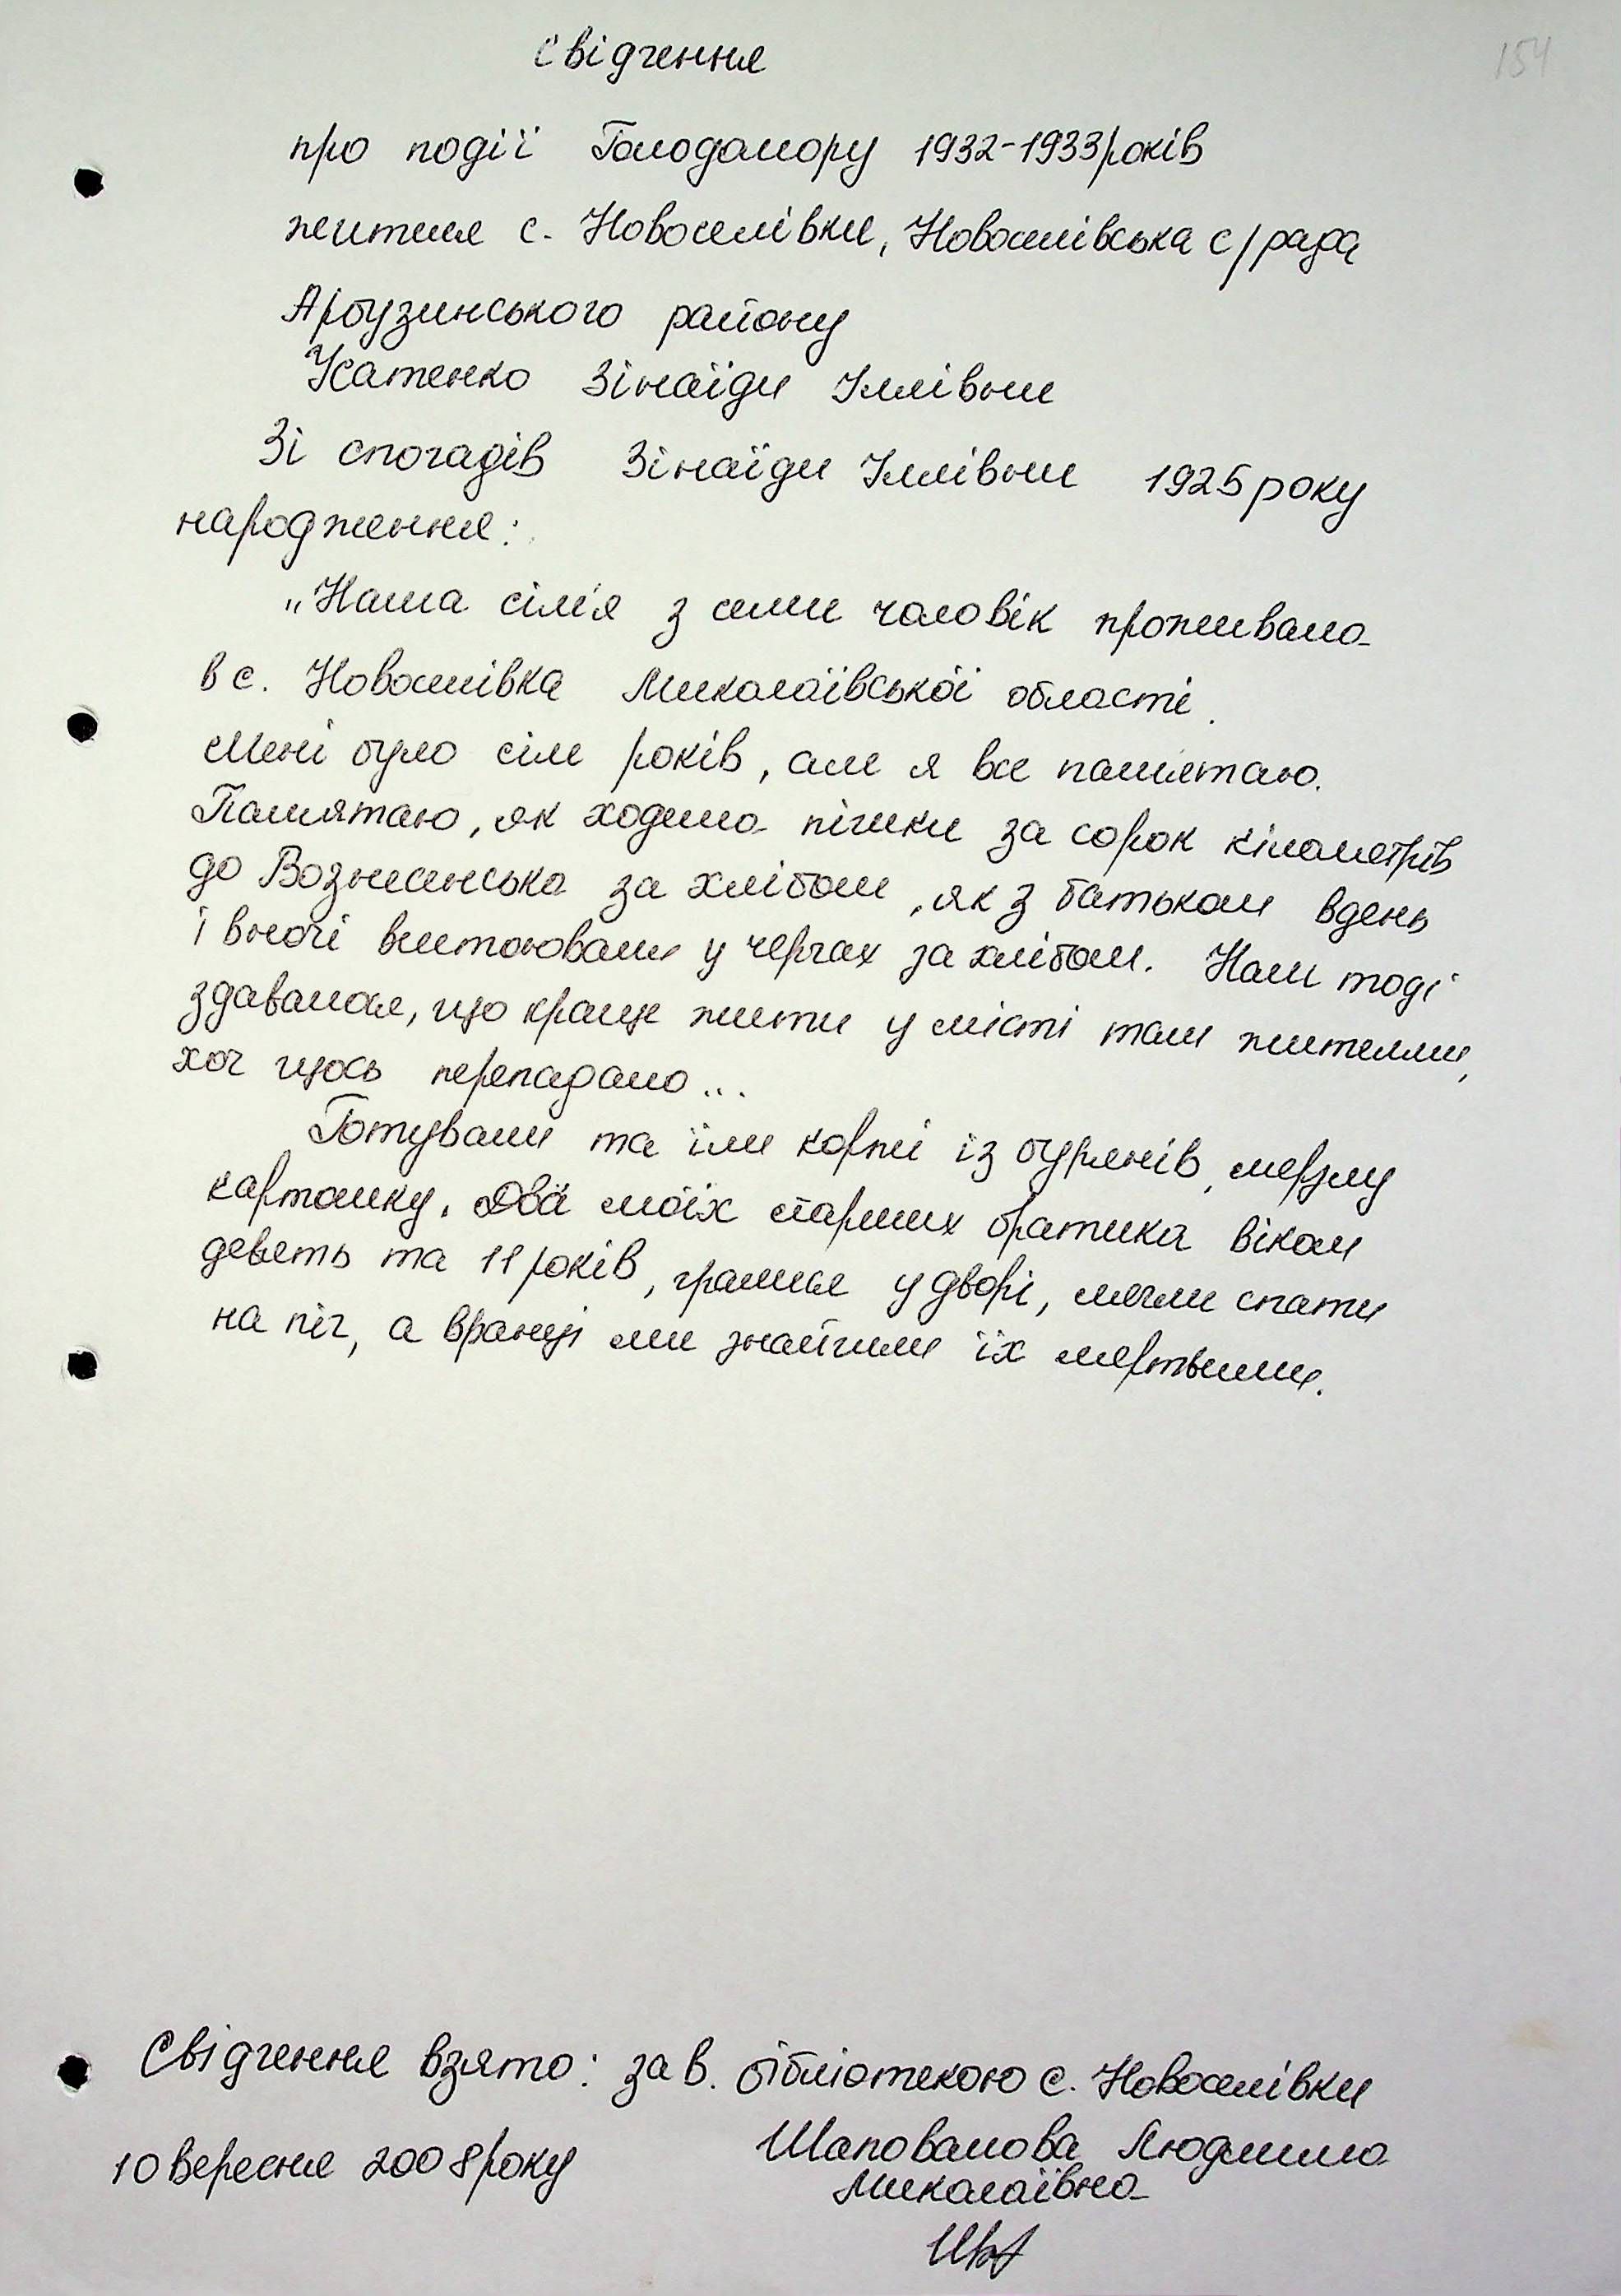 154
Свідчення
про події Голодомору 1932-1933 років
жителя с. Новоселівки, Новоселівська с/рада
Арбузинського району
Усатенко Зінаїди Іллівни
Зі спогадів Зінаїди Іллівни 1925 року
народження:
„Наша сім'я з семи чоловік проживала
в с. Новоселівка Миколаївської області.
Мені було сім років, але я все пам'ятаю.
Памятаю, як ходила пішки за сорок кілометрів
до Вознесенська за хлібом, як з батьком вдень
і вночі вистоювали у чергах за хлібом. Нам тоді
здавалося, що краще жити у місті там жителям,
хоч щось перепадало...
Готували та їли коржі із бурянів, мерзлу
картошку. Два моїх старших братика віком
девять та 11 років, грались у дворі, лягли спати
на піч, а вранці ми знайшли їх мертвими.
Свідчення взято: зав. бібліотекою с. Новоселівки
10 вересня 2008 року Шаповалова Людмила
Миколаївна